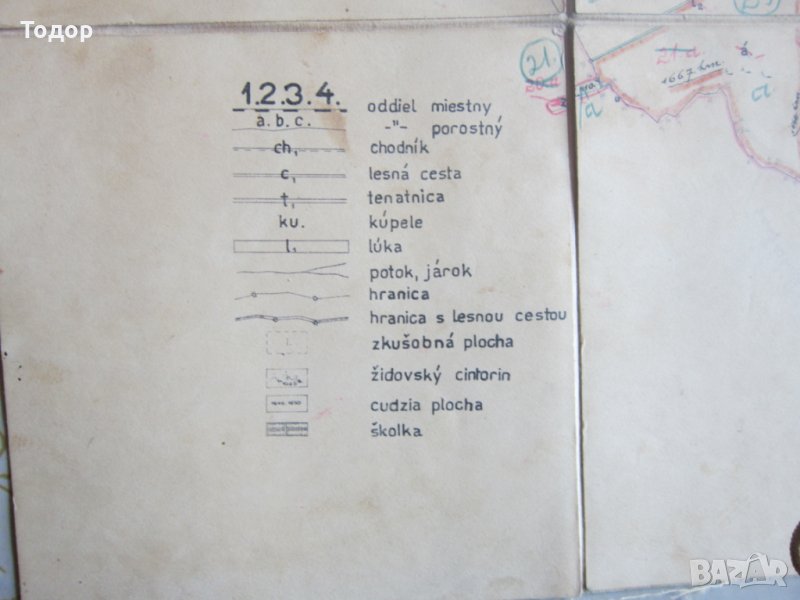 Тодор
1.2.3.4. oddiel miestny
a. b. c. -"- porostný
ch, chodník
c, lesná cesta
t, tenatnica
ku. kúpele
l, lúka
potok, járok
hranica
hranica s lesnou cestou
zkušobná plocha
židovský cintorin
cudzia plocha
školka
21.
21a
667 km.
á.
a
a
BAZAR